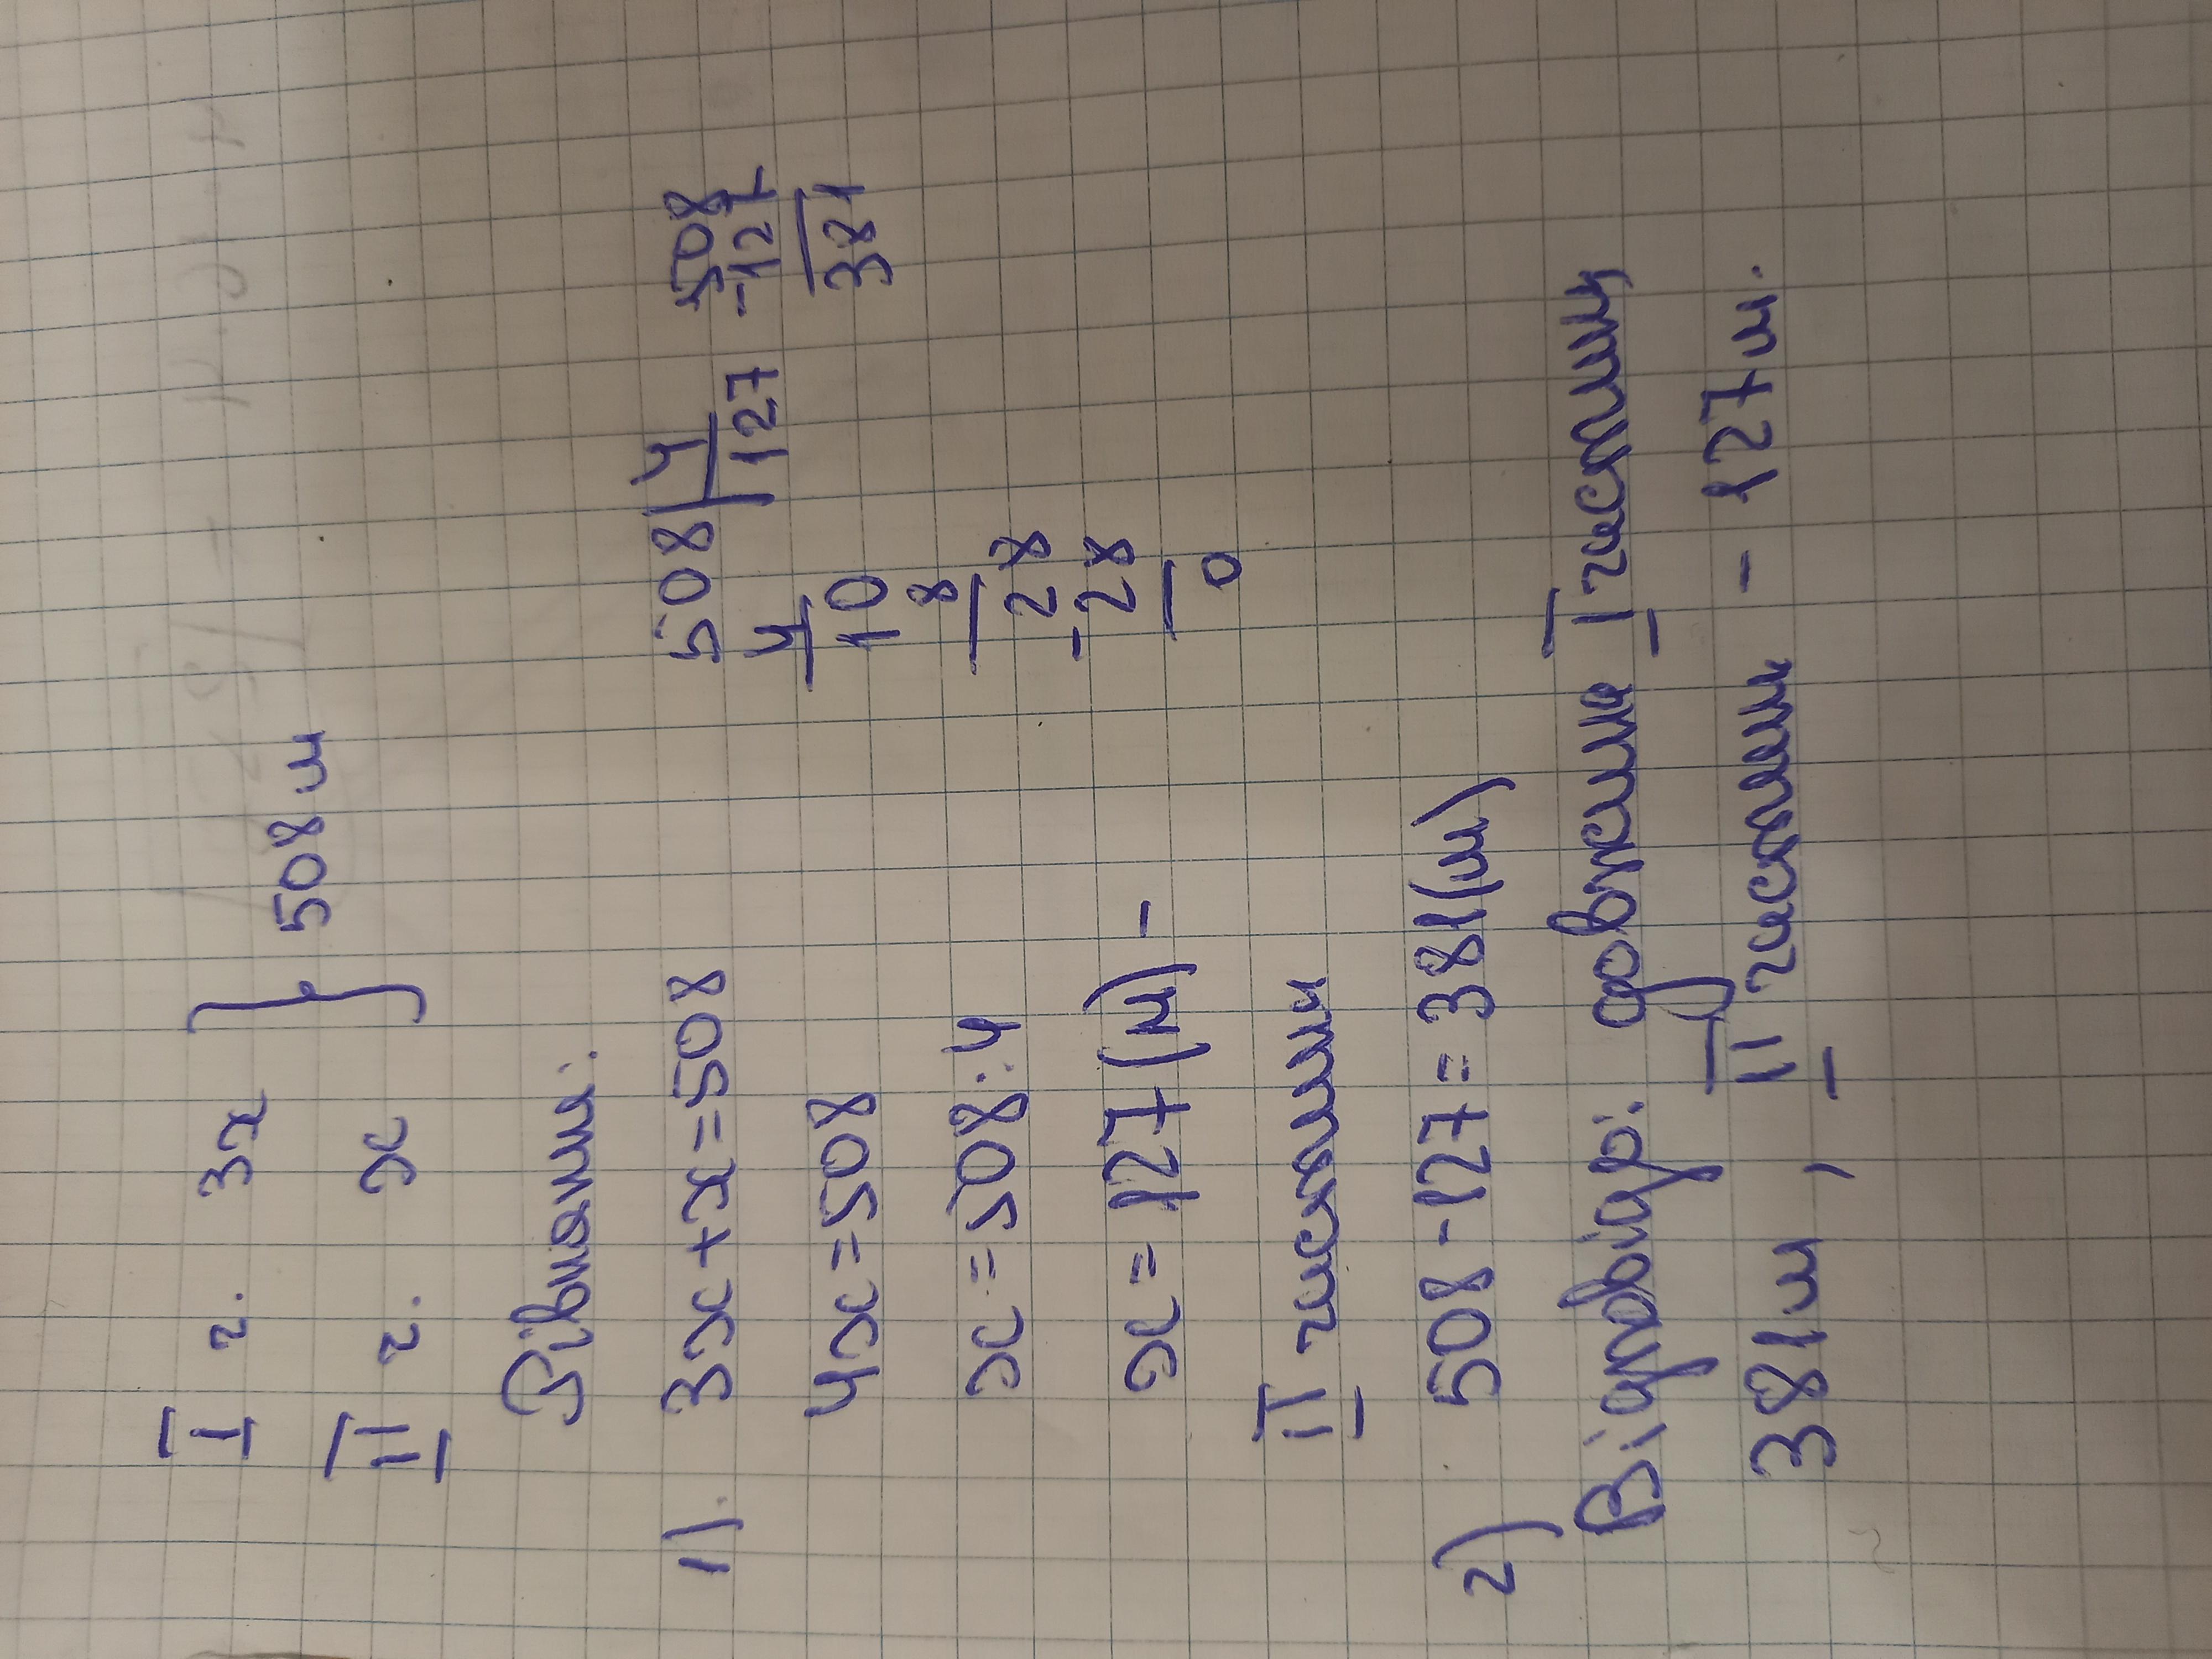 I ч. 3x } 508 м
II ч. x
Рівняння:
1). 3x+x=508
4x=508
x=508:4
x=127(м) -
II частини
2) 508-127=381(м)
Відповідь: довжина I частини
381м , II частини - 127м.
508|4
4 |127
10
8
28
-28
0
508
-127
381